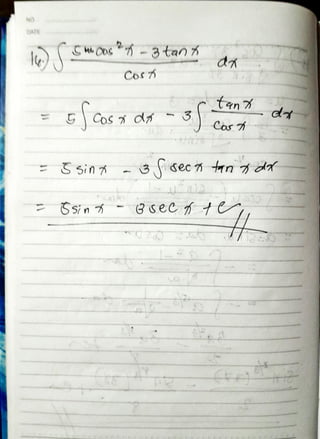 NO
DATE
14) ∫ (5 cos²x - 3 tan x) / cos x dx
= 5 ∫ cos x dx - 3 ∫ (tan x / cos x) dx
= 5 sin x - 3 ∫ sec x tan x dx
= 5 sin x - 3 sec x + c //